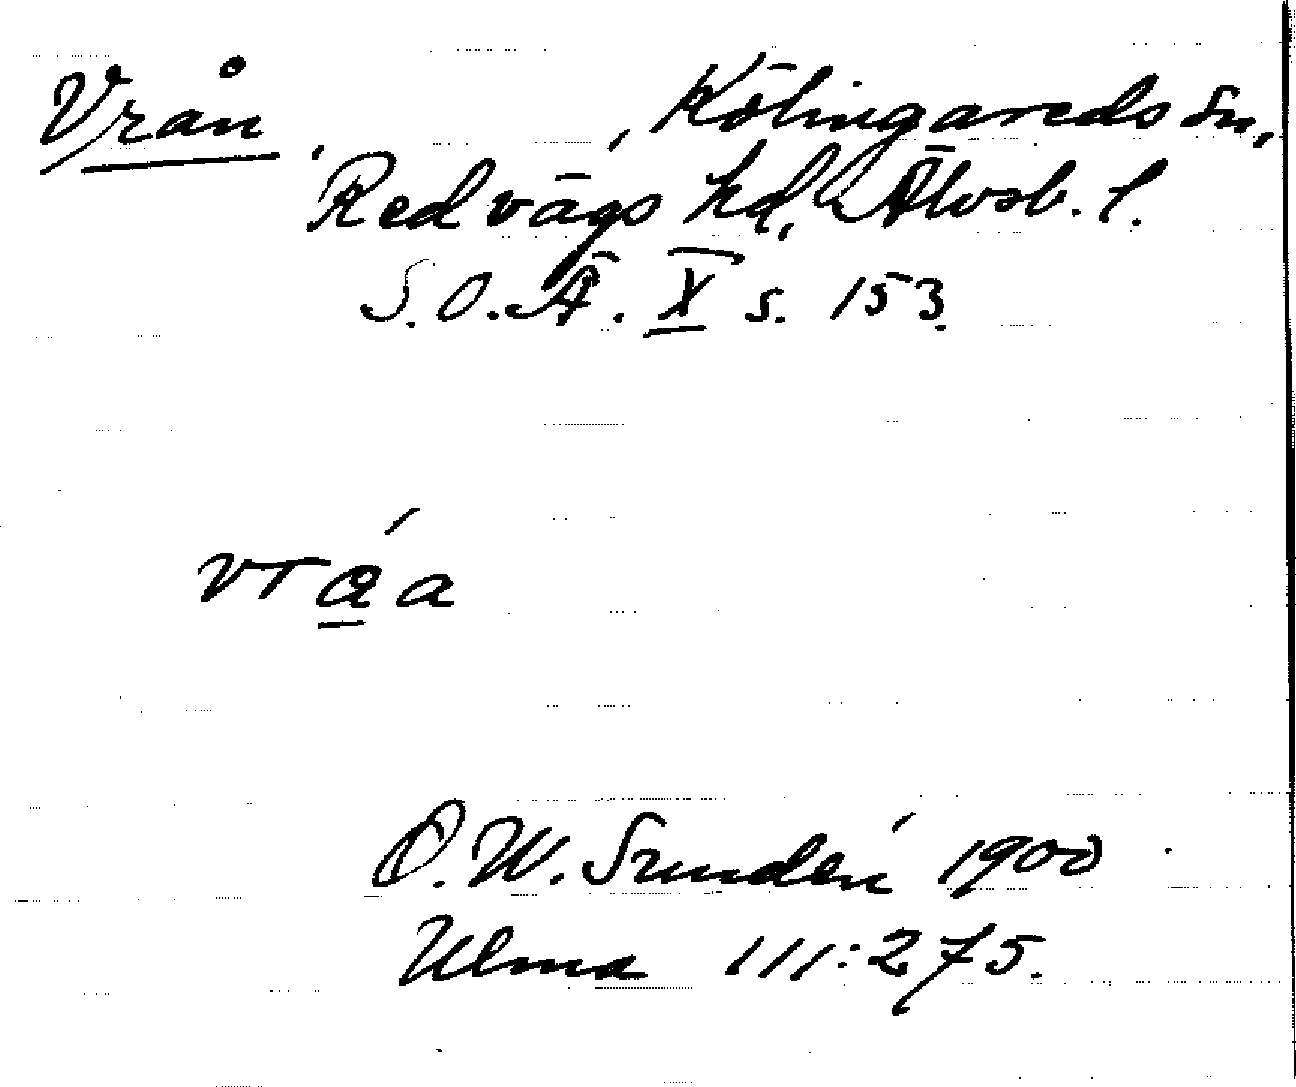 Vrån, , Kölingareds sn,
Redvägs hd, Älvsb. l.
S.O.Ä. X s. 153.
vra̲´a
O. W. Sundén 1900
Ulma 111:275.